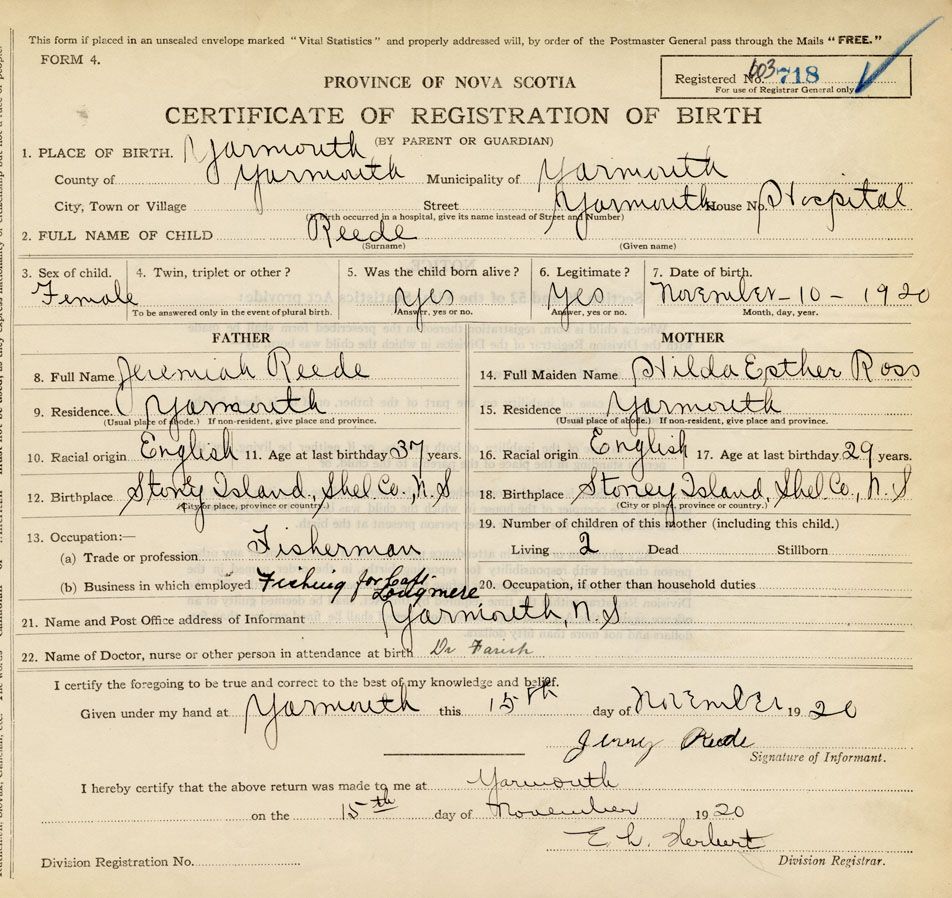 This form if placed in an unsealed envelope marked "Vital Statistics" and properly addressed will, by order of the Postmaster General pass through the Mails "FREE."
FORM 4.
Registered No. 603 718
For use of Registrar General only
PROVINCE OF NOVA SCOTIA
CERTIFICATE OF REGISTRATION OF BIRTH
(BY PARENT OR GUARDIAN)
1. PLACE OF BIRTH. Yarmouth
County of Yarmouth Municipality of Yarmouth
City, Town or Village Street Yarmouth House No. Hospital
(If birth occurred in a hospital, give its name instead of Street and Number)
2. FULL NAME OF CHILD Reede
(Surname) (Given name)
3. Sex of child. 4. Twin, triplet or other? 5. Was the child born alive? 6. Legitimate? 7. Date of birth.
Female yes Yes November-10-1920
To be answered only in the event of plural birth. Answer, yes or no. Answer, yes or no. Month, day, year.
FATHER MOTHER
8. Full Name Jeremiah Reede 14. Full Maiden Name Hilda Esther Ross
9. Residence. Yarmouth 15. Residence Yarmouth
(Usual place of abode.) If non-resident, give place and province. (Usual place of abode.) If non-resident, give place and province.
10. Racial origin English 11. Age at last birthday 37 years. 16. Racial origin English 17. Age at last birthday 29 years.
12. Birthplace Stony Island, Shel. Co., N.S 18. Birthplace Stoney Island, Shel Co., N.S
(City or place, province or country.) (City or place, province or country.)
13. Occupation:— 19. Number of children of this mother (including this child.)
(a) Trade or profession Fisherman Living 2 Dead Stillborn
(b) Business in which employed Fishing for Capt. Longmere 20. Occupation, if other than household duties
21. Name and Post Office address of Informant Yarmouth, N.S
22. Name of Doctor, nurse or other person in attendance at birth Dr Farish
I certify the foregoing to be true and correct to the best of my knowledge and belief.
Given under my hand at Yarmouth this 15th day of November 1920
Jerry Reede
Signature of Informant.
I hereby certify that the above return was made to me at Yarmouth
on the 15th day of November 1920
E. h. Herbert
Division Registration No. Division Registrar.